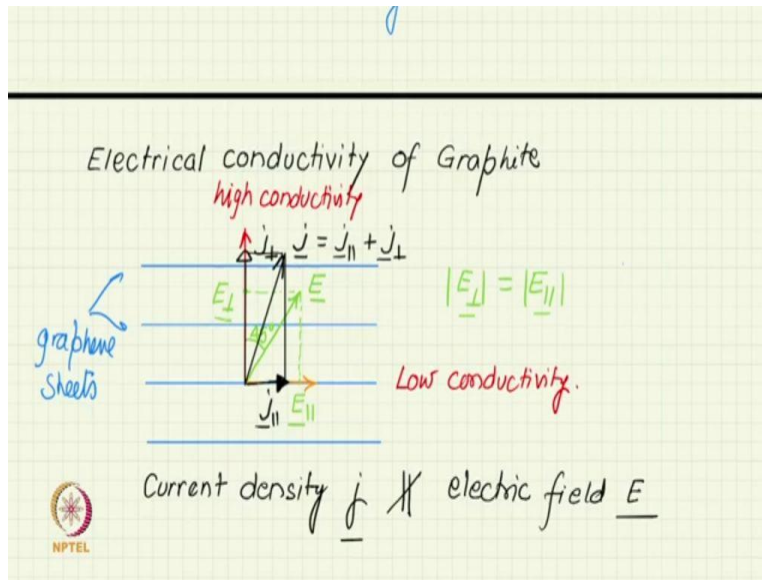 Electrical conductivity of Graphite
high conductivity
j⊥ j = j∥ + j⊥
E⊥ E |E⊥| = |E∥|
45°
graphene
sheets
Low conductivity.
j∥ E∥
Current density j ∦ electric field E
NPTEL